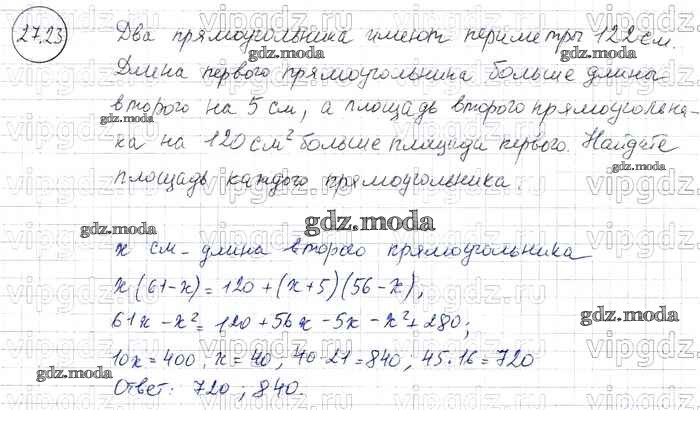 27.23
Два прямоугольника имеют периметры 122 см.
Длина первого прямоугольника больше длины
второго на 5 см, а площадь второго прямоугольни-
ка на 120 см² больше площади первого. Найдите
площадь каждого прямоугольника.
x см - длина второго прямоугольника
x(61-x) = 120 + (x+5)(56-x);
61x - x² = 120 + 56x - 5x - x² + 280;
10x = 400, x = 40, 40·21 = 840; 45·16 = 720
Ответ: 720; 840.
gdz.moda
vipgdz.ru